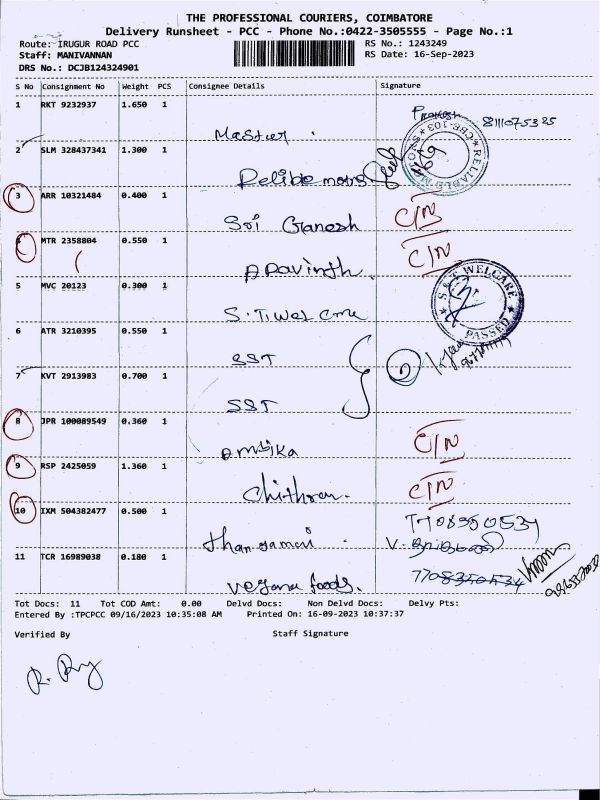 THE PROFESSIONAL COURIERS, COIMBATORE
Delivery Runsheet - PCC - Phone No.:0422-3505555 - Page No.:1
Route: IRUGUR ROAD PCC RS No.: 1243249
Staff: MANIVANNAN RS Date: 16-Sep-2023
DRS No.: DCJB124324901
S No Consignment No Weight PCS Consignee Details Signature
1 RKT 9232937 1.650 1
Master
2 SLM 328437341 1.300 1
3 ARR 10321484 0.400 1 C/N
Sri Ganesh
4 MTR 2358804 0.550 1 C/N
Aravinth.
5 MVC 20123 0.300 1 S & T WELCARE
PASSED
6 ATR 3210395 0.550 1
SST
7 KVT 2913983 0.700 1
SST
8 JPR 100089549 0.360 1 C/N
Ambika
9 RSP 2425059 1.360 1 C/N
Chithran.
10 IXM 504382477 0.500 1
11 TCR 16989038 0.180 1
foods.
Tot Docs: 11 Tot COD Amt: 0.00 Delvd Docs: Non Delvd Docs: Delvy Pts:
Entered By :TPCPCC 09/16/2023 10:35:08 AM Printed On: 16-09-2023 10:37:37
Verified By Staff Signature